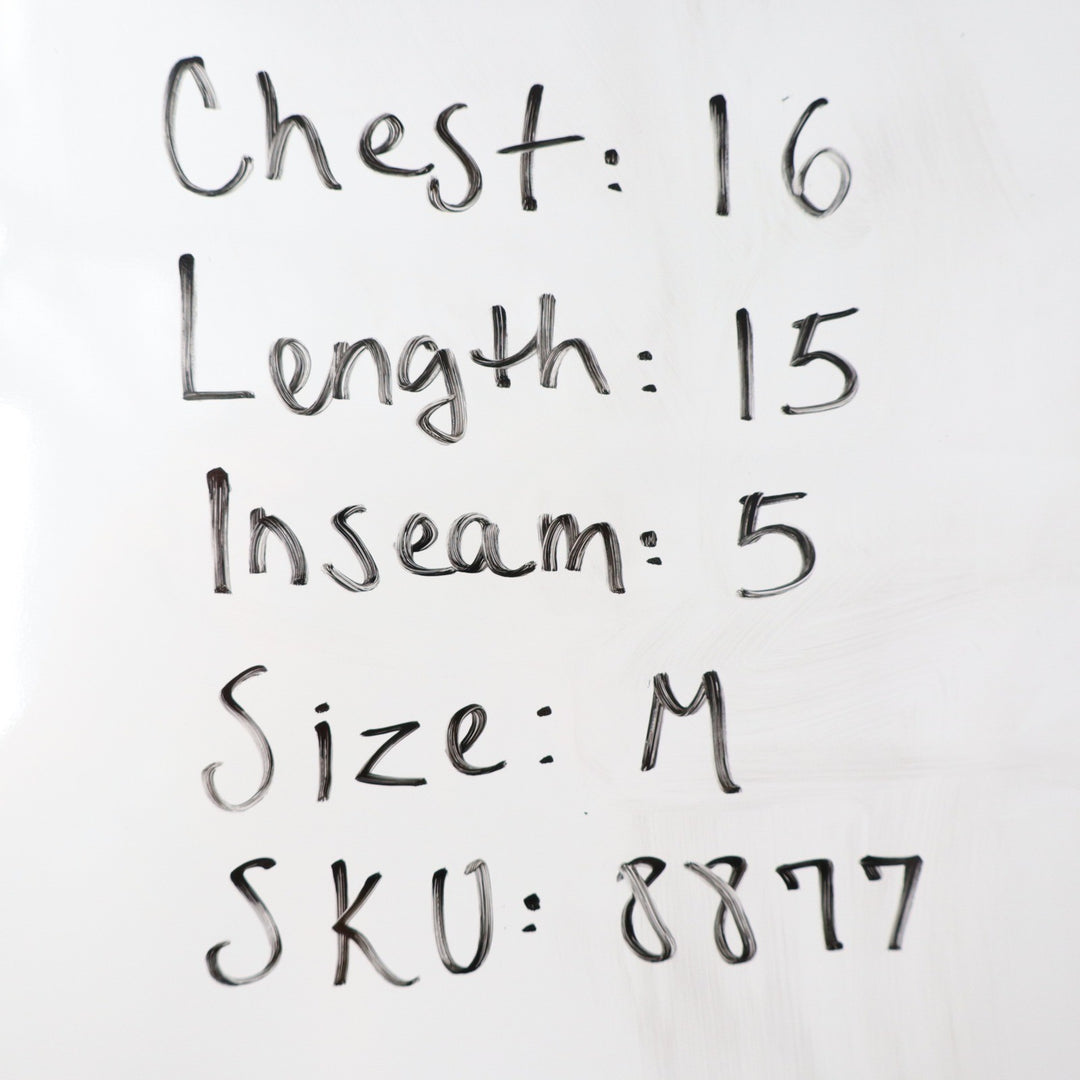 Chest: 16
Length: 15
Inseam: 5
Size: M
SKU: 8877